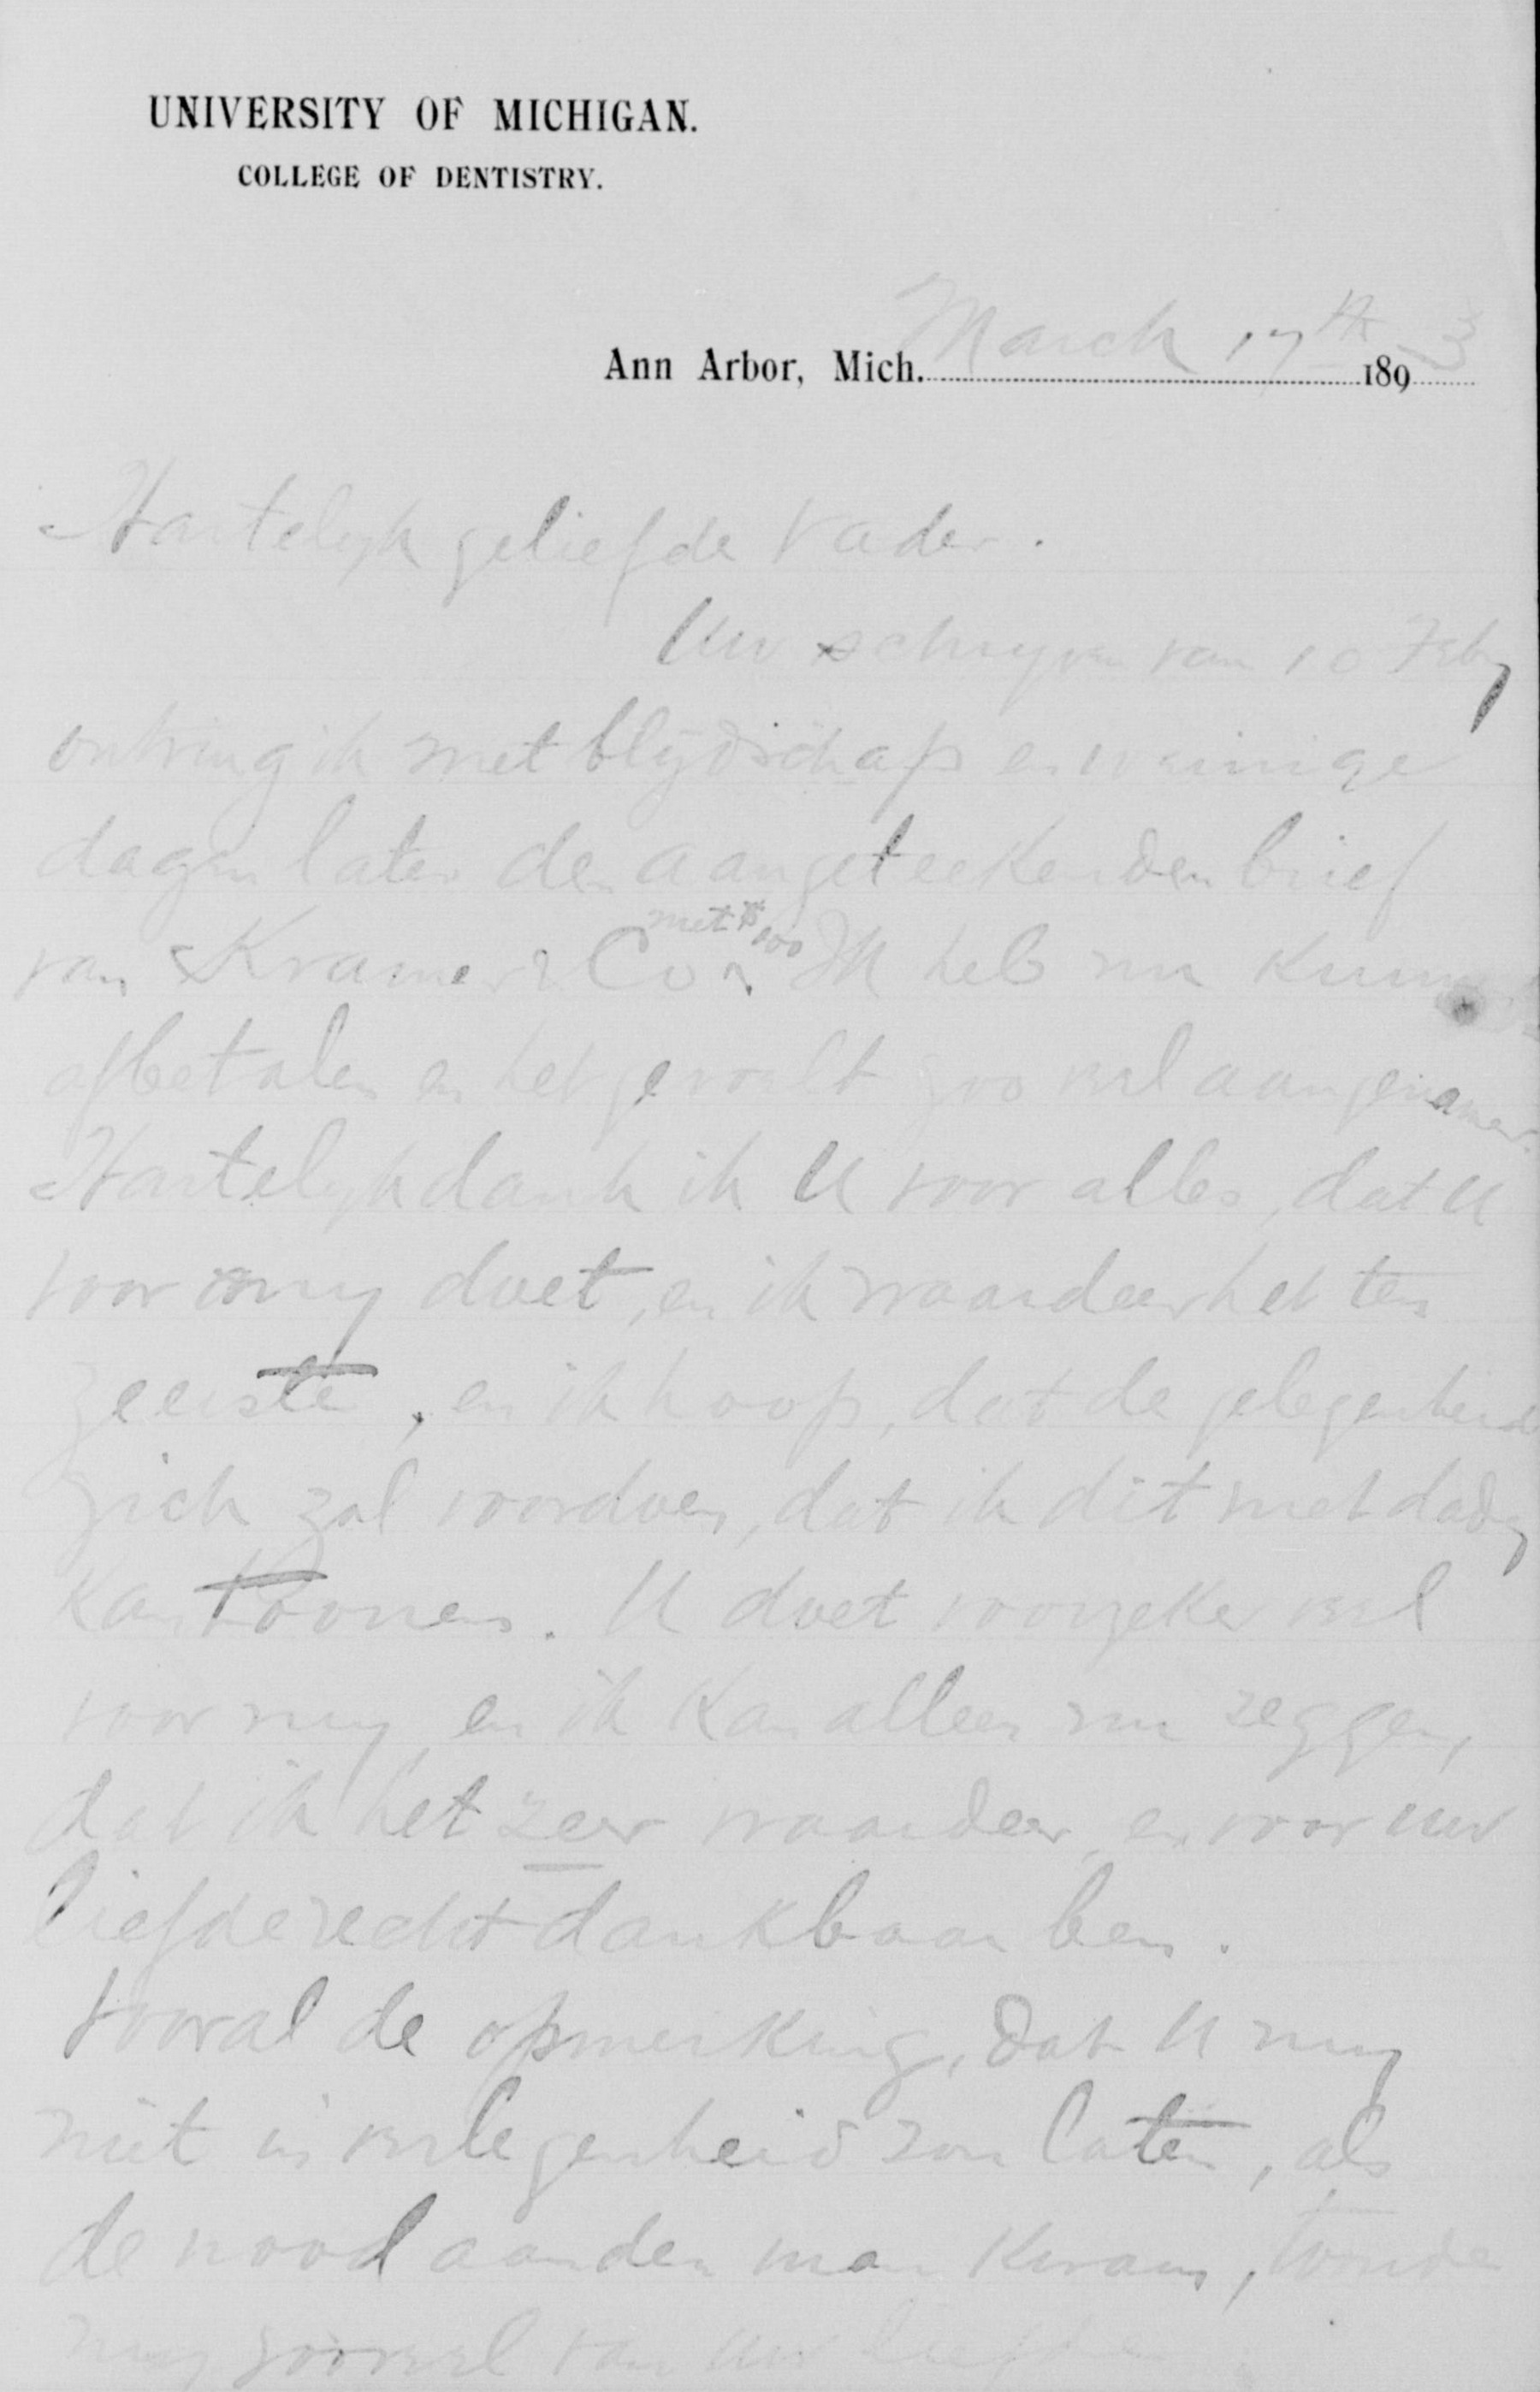 UNIVERSITY OF MICHIGAN.
COLLEGE OF DENTISTRY.
Ann Arbor, Mich. March 17th 1893
Hartelyk geliefde Vader.
Uw schryven van 10 Feby
ontving ik met blydschap en weinige
dagen later den aangeteekenden brief
van Kramer & Co met $100. Ik heb nu kunnen
afbetalen en het gevoelt zoo veel aangenamer.
Hartelyk dank ik U voor alles, dat U
voor my doet, en ik waardeer het ten
zeerste, en ik hoop, dat de gelegenheid
zich zal voordoen, dat ik dit met dady
kan toonen. U doet voorzeker veel
voor my en ik kan alleen nu zeggen,
dat ik het zeer waardeer en voor uw
liefde recht dankbaar ben.
Vooral de opmerking, dat U my
niet in verlegenheid zou laten, als
de nood aan den man kwam, toonde
my zooveel van uw liefde